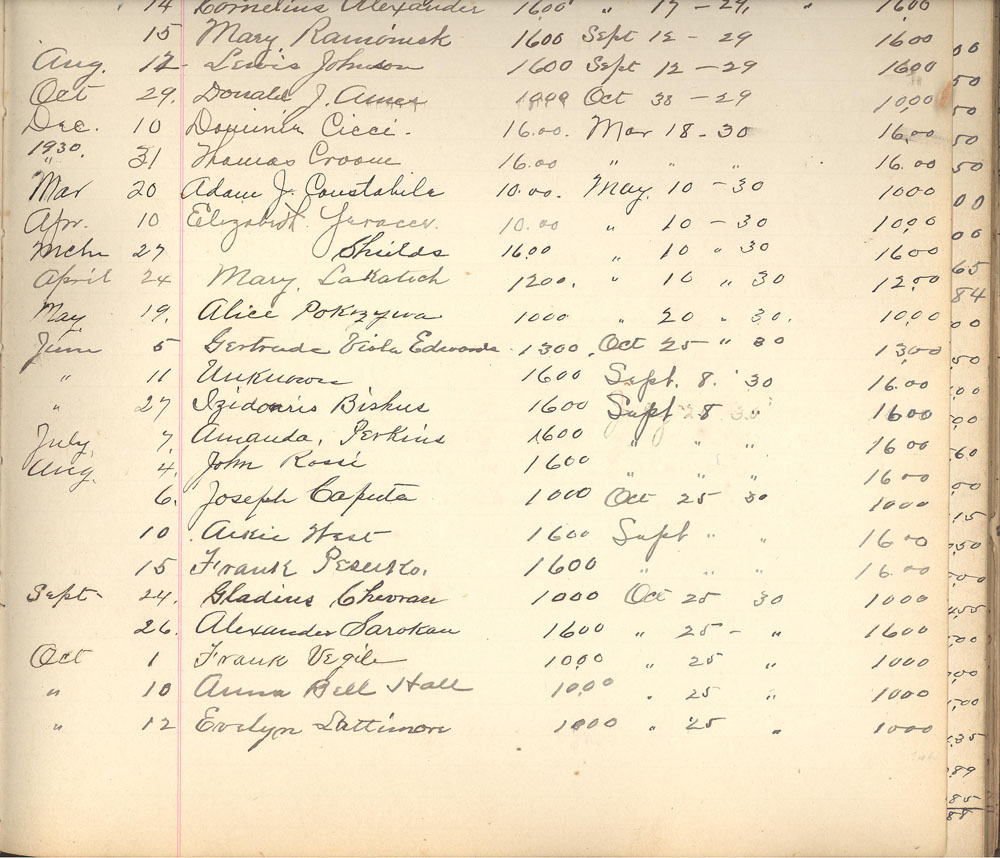 14 Cornelius Alexander 1600 " 17 - 29, " 1600
15 Mary 1600 Sept 12 - 29 1600
Aug. 12 Lewis Johnson 1600 Sept 12 - 29 1600
Oct 29. Donald J. Ames Oct 38 - 29 1000
Dec. 10 Cicci. 16.00. Mar 18 - 30 16.00
1930. " 31 Thomas Croom 16.00 " " " 16.00
Mar 20 Adam J. Constabile 10.00. May. 10 - 30 1000
Apr. 10 Elizabeth 10.00 " 10 - 30 1000
Mch 27 Shields 1600 " 10 " 30 1600
April 24 Mary. Lakatich 1200. " 10 " 30 1200
May, 19. Alice Pokrzywa 1000 " 20 " 30. 1000
June 5 Gertrude Viola Edwards 1300. Oct 25 " 30 1300
" 11 Unknown 1600 Sept. 8. '30 1600
" 27 Biskus 1600 Sept 8 30 1600
July, 7, Amanda, Perkins 1600 " " " 1600
Aug. 4, John Rossi 1600 " " " 1600
6. Joseph Caputa 1000 Oct 25 30 1000
10 West 1600 Sept " " 1600
15 Frank 1600 " " " 1600
Sept 24. Gladius Chevrau 1000 Oct 25 30 1000
26. Alexander Sarokau 1600 " 25 - " 1600
Oct 1 Frank Vegile 1000 " 25 " 1000
" 10 Anna Bell Hall 1000 " 25 " 1000
" 12 Evelyn Lattimore 1000 " 25 " 1000